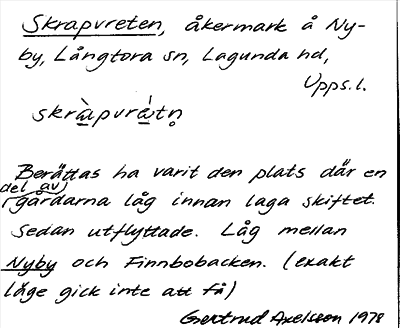 Skrapvreten, åkermark å Ny-
by, Långtora sn, Lagunda hd,
Upps. l.
skrɑ̀pvrɑ́tn̥
Berättas ha varit den plats där en
del av
gårdarna låg innan laga skiftet.
Sedan utflyttade. Låg mellan
Nyby och Finnbobacken. (exakt
läge gick inte att få)
Gertrud Axelsson 1978